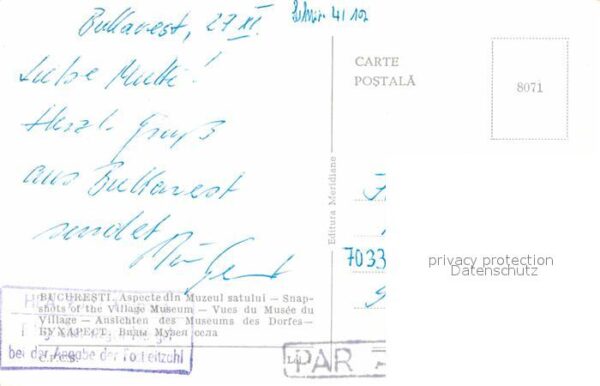 Bukarest, 27. XI.
41 102
Liebe Mutti!
Herzl. Gruß
aus Bukarest
sendet
CARTE
POȘTALĂ
8071
Editura Meridiane
7033
privacy protection
Datenschutz
BUCUREȘTI. Aspecte din Muzeul satului — Snap-
shots of the Village Museum — Vues du Musée du
Village — Ansichten des Museums des Dorfes —
БУХАРЕСТ. Виды Музея села
C.P.C.S.
bei der Angabe der Postleitzahl
PAR